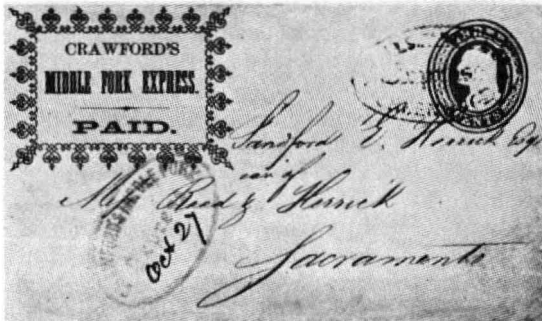 CRAWFORD'S
MIDDLE FORK EXPRESS.
PAID.
Sandford E. Herrick Esq
care of
Reed & Herrick
Sacramento
MIDDLE FORK
Oct 27